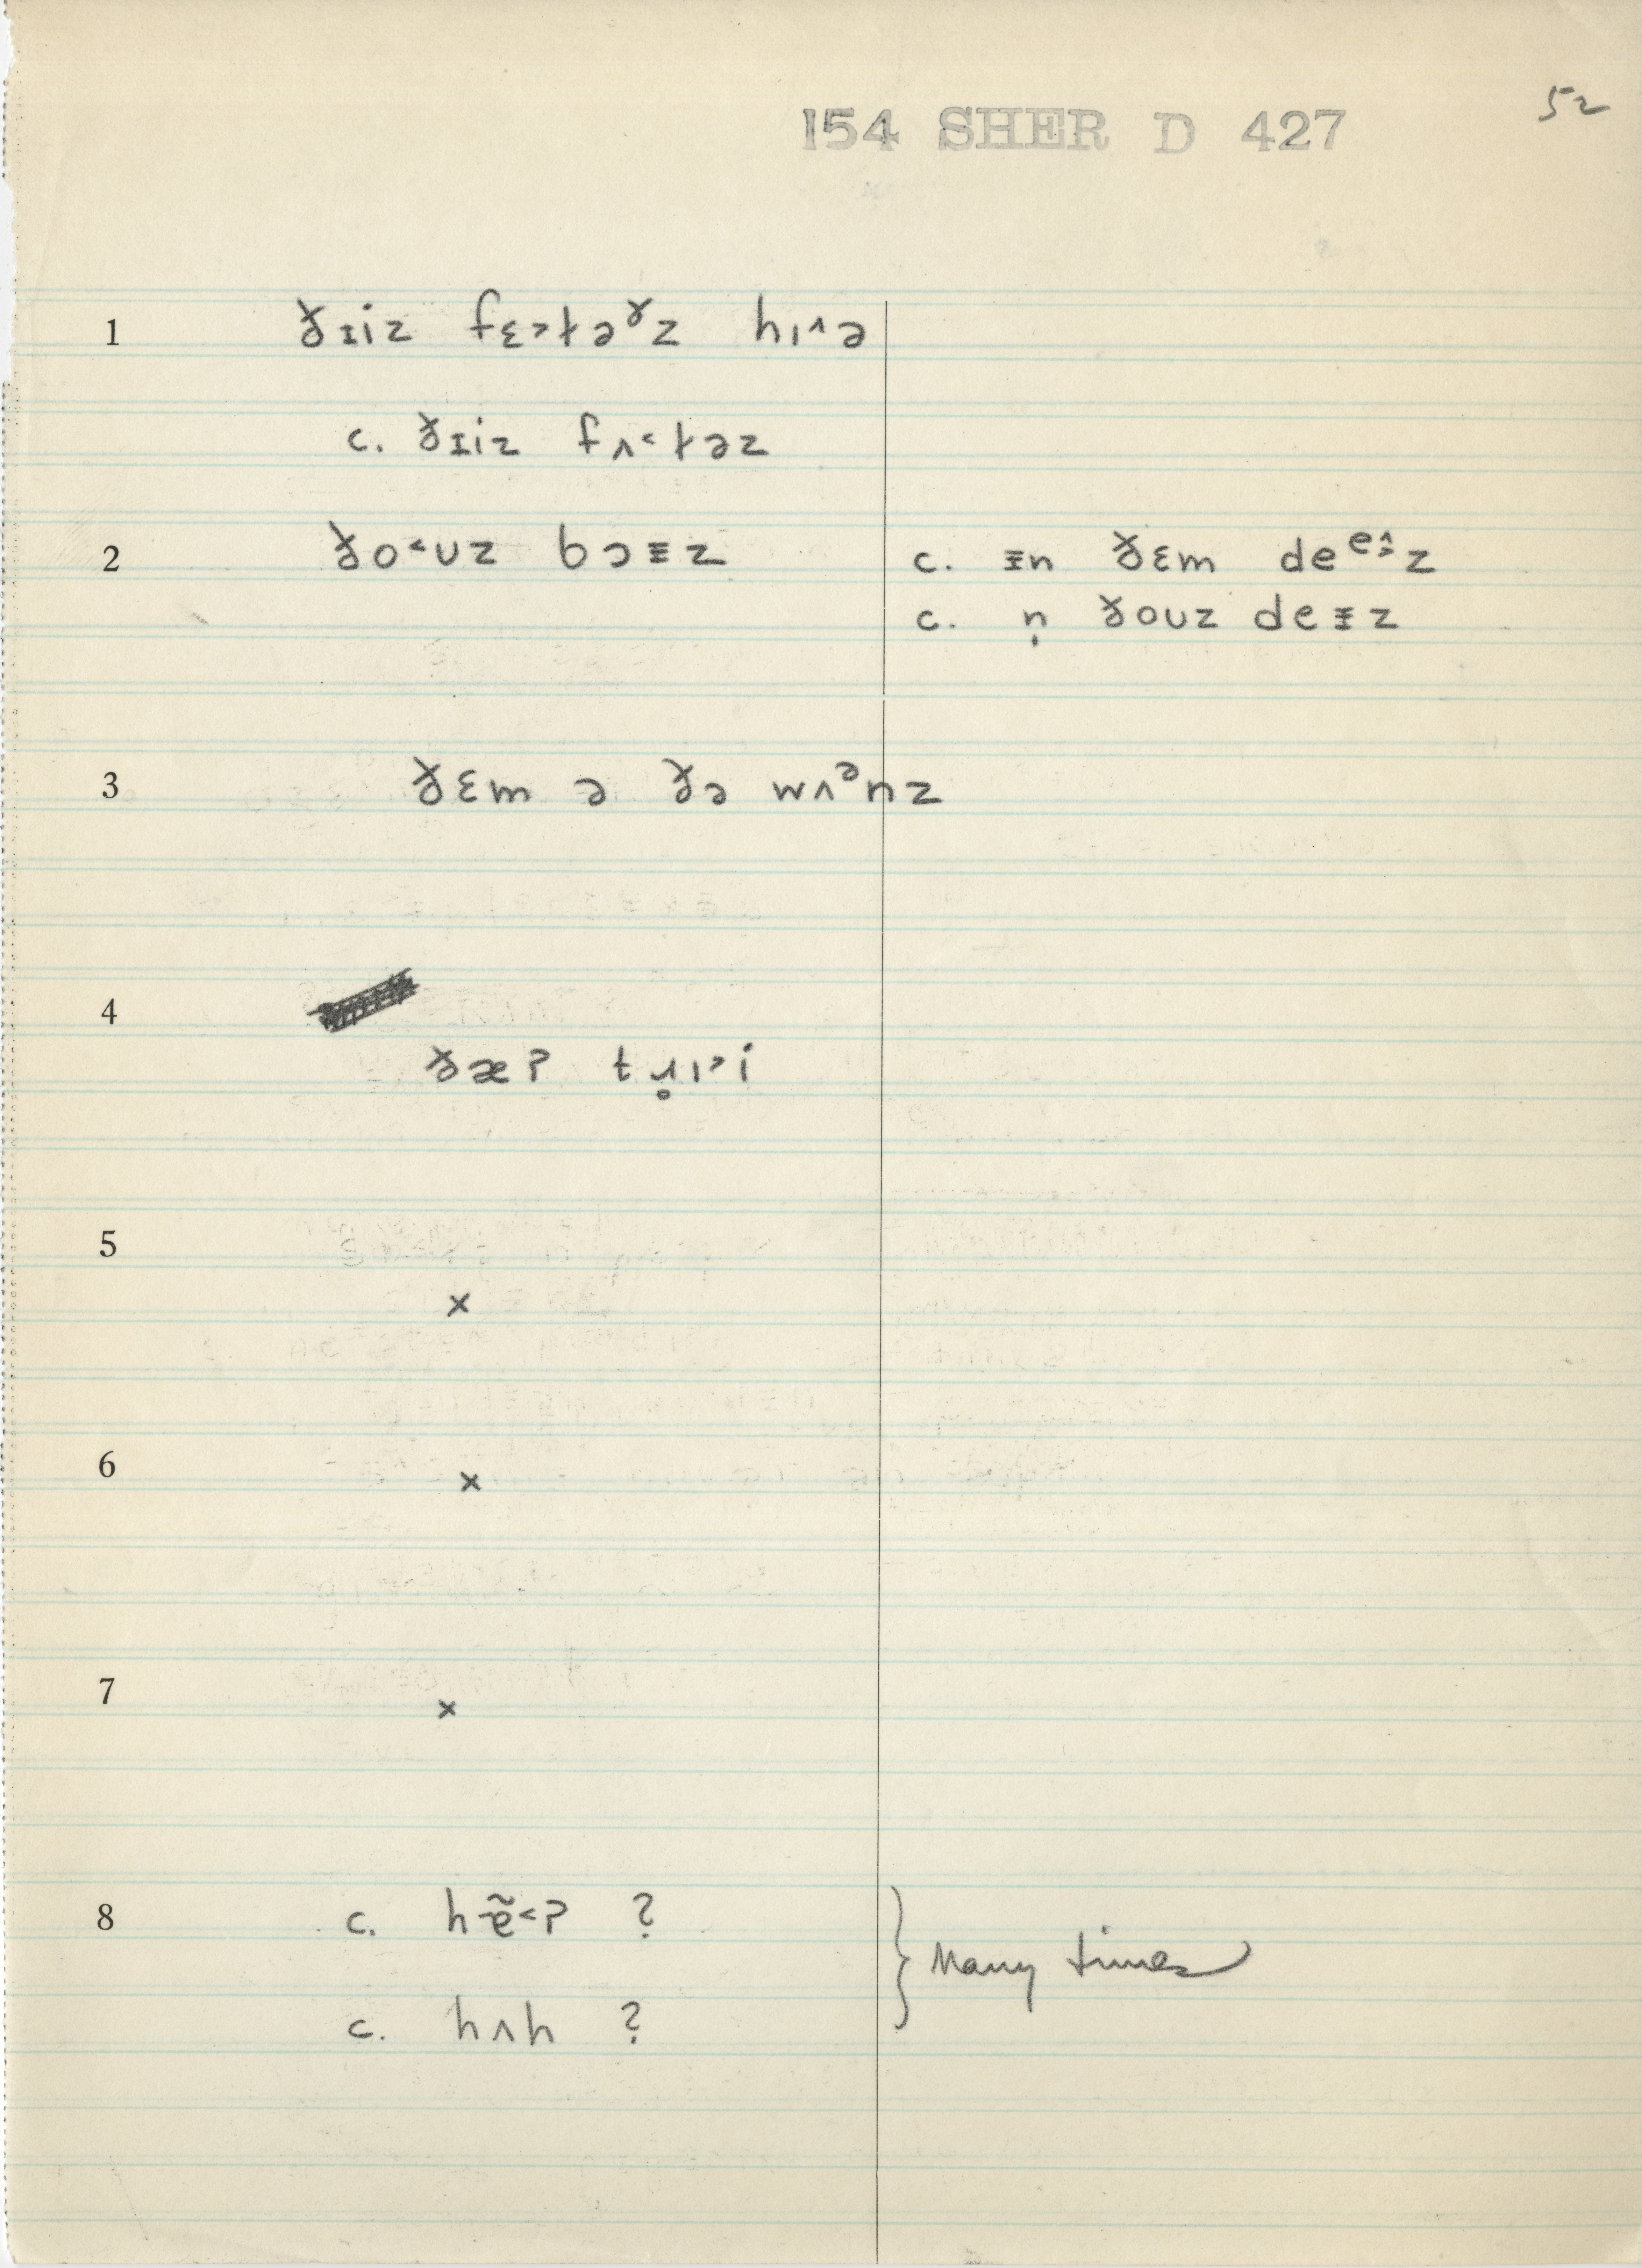 52
154 SHER D 427
1 ðɪiz fɛ˃ɫəᵟz hɪ˄ə
c. ðɪiz fʌ˂ɫəz
2 ðo˂ʊz bɔɪz
c. ɪn ðɛm deᵉɪ˄z
c. n̩ ðoʊz deɪz
3 ðɛm ə ðə wʌᵊnz
4
ðæʔ tɹ̥ɪ˃i
5
x
6 x
7 x
8 c. hẽ˂ʔ ?
Many times
c. hʌh ?